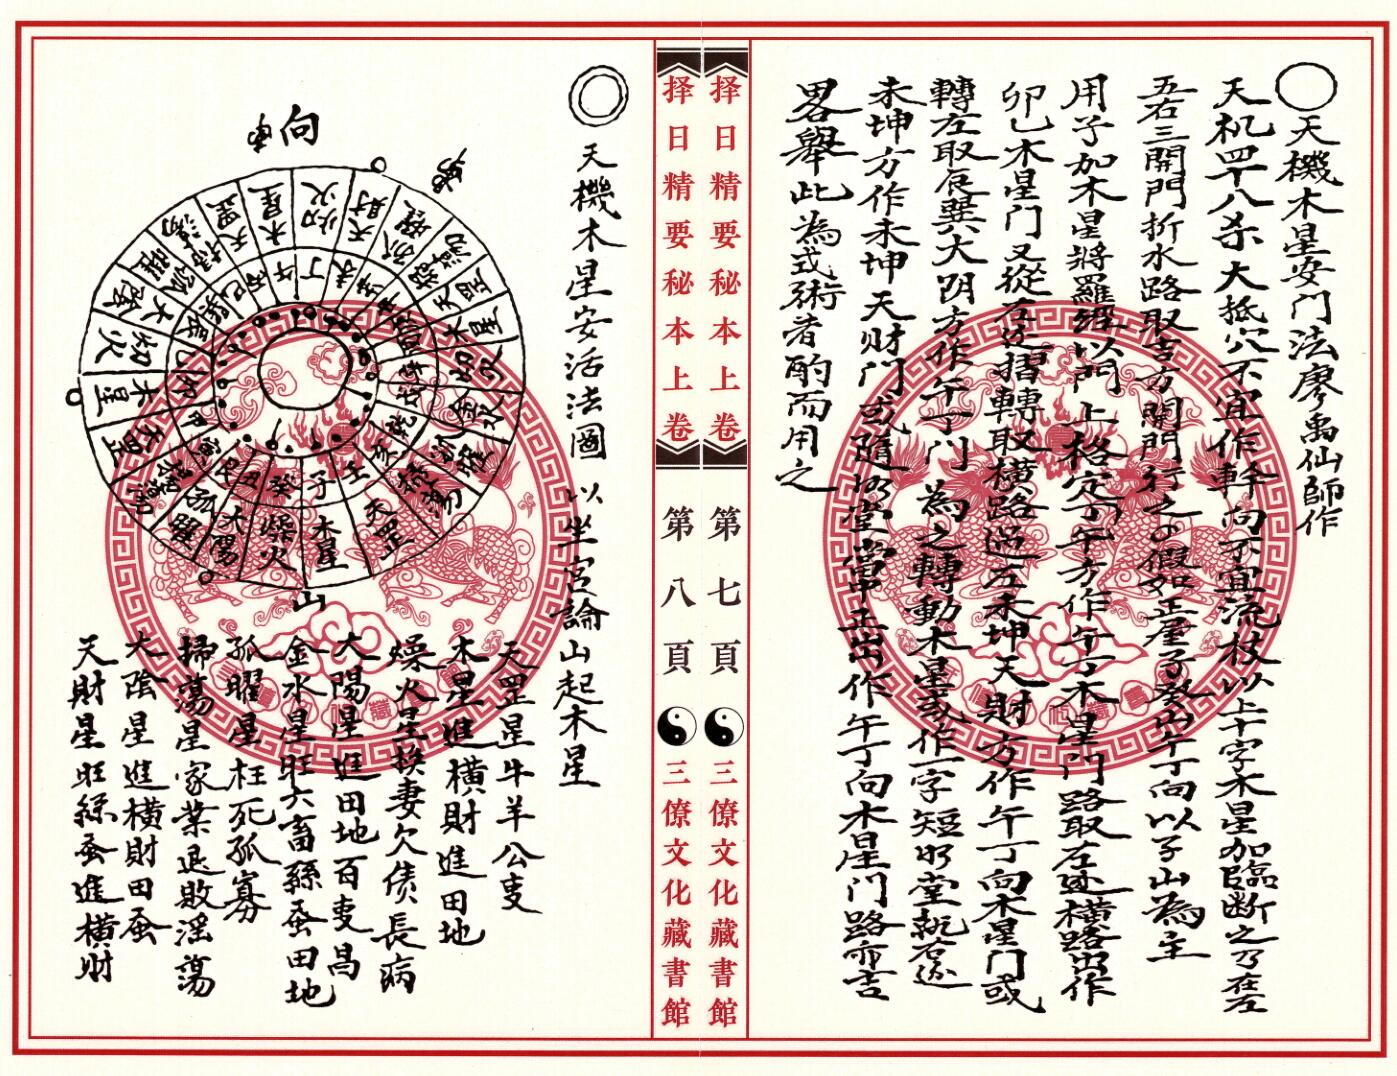 天機木星安門法廖禹仙師作
天机四十八杀大抵穴不宜作幹向不宜流杖以上十字木星加臨断之乃在左
五右三開門折水路取吉方開門行之假如正屋子癸山午丁向以子山為主
用子加木星將羅經以門上格定丁午方作午丁木星門路取左边橫路出作
卯乙木星門又從右边摺轉取橫路过左未坤天財方作午丁向木星門或
轉左取辰巽大阴方作午丁门為之轉動木星或作一字短明堂就右边
未坤方作未坤天财门或隨明堂當中正出作午丁向木星門路亦吉
畧舉此為式術者酌而用之
择日精要秘本上卷
第七頁
三僚文化藏書館
择日精要秘本上卷
第八頁
三僚文化藏書館
天機木星安活法圖
以坐宮論山起木星
向
山
天罡星牛羊公隻
木星進橫財進田地
燥火星换妻欠债長病
大陽星進田地百隻昌
金水星旺六畜絲蚕田地
孤曜星枉死孤寡
掃蕩星家業退敗淫蕩
大陰星進橫財田蚕
天財星旺絲蚕進橫財
木星
燥火
大陽
孤曜
掃蕩
天罡
木星
大陰
天罡
木星
天財
子
癸
丑
卯
巳
午
丁
未
坤
亥
壬